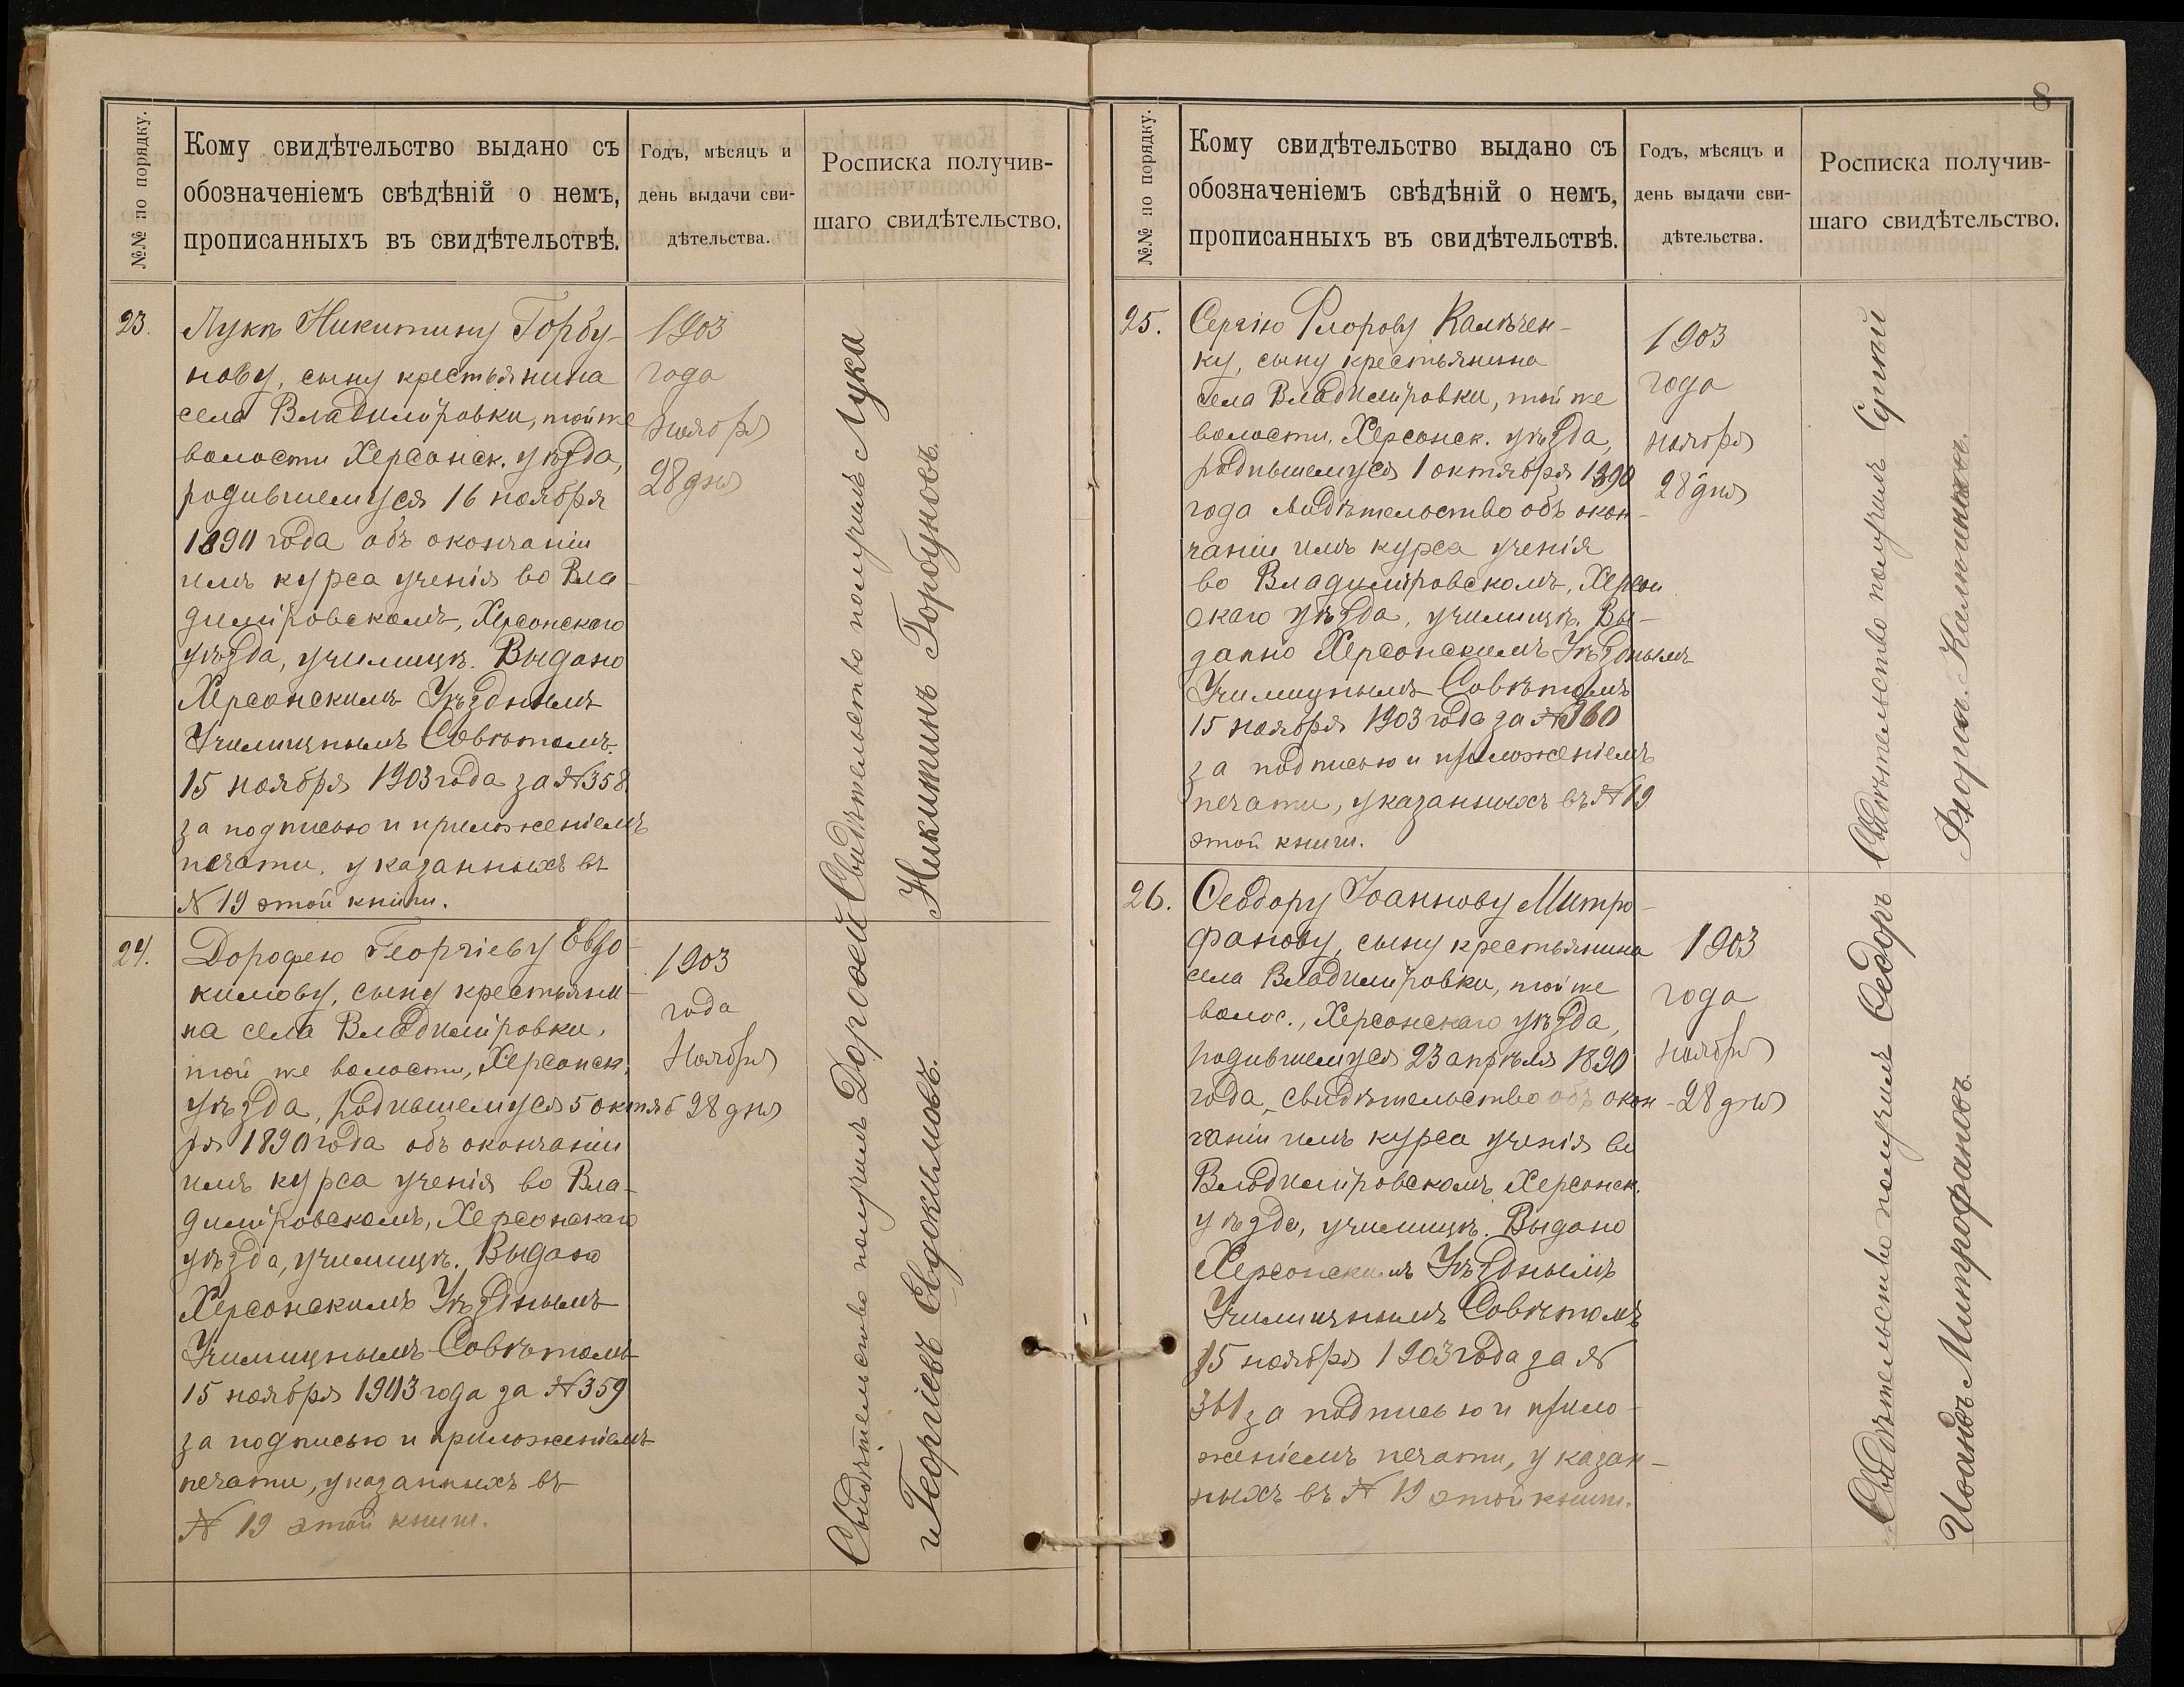 №№ по порядку.
Кому свидѣтельство выдано съ
обозначеніемъ свѣдѣній о немъ,
прописанныхъ въ свидѣтельствѣ.
Годъ, мѣсяцъ и
день выдачи сви-
дѣтельства.
Росписка получив-
шаго свидѣтельство.
23.
Лукѣ Никитину Горбу-
нову, сыну крестьянина
села Владимiровки, той же
волости Херсонск. уѣзда,
родившемуся 16 ноября
1890 года объ окончанiи
имъ курса ученiя во Вла-
димiровскомъ, Херсонскаго
уѣзда, училищѣ. Выдано
Херсонскимъ Уѣзднымъ
Училищнымъ Совѣтомъ
15 ноября 1903 года за №358.
за подписью и приложенiемъ
печати, указанныхъ въ
№ 19 этой книги.
1903
года
ноября
28 дня
Свидѣтельство получилъ Лука
Никитинъ Горбуновъ
24.
Дорофею Георгiеву Евдо-
кимову, сыну крестьяни-
на села Владимiровки,
той же волости, Херсонск.
уѣзда, родившемуся 5 октяб
ря 1890 года объ окончанiи
имъ курса ученiя во Вла-
димiровскомъ, Херсонскаго
уѣзда, училищѣ. Выдано
Херсонскимъ Уѣзднымъ
Училищнымъ Совѣтомъ
15 ноября 1903 года за №359
за подписью и приложенiемъ
печати, указанныхъ въ
№ 19 этой книги.
1903
года
Ноября
28 дня
Свидѣтельство получилъ Дорофей
Георгiевъ Евдокимовъ.
8
№№ по порядку.
Кому свидѣтельство выдано съ
обозначеніемъ свѣдѣній о немъ,
прописанныхъ въ свидѣтельствѣ.
Годъ, мѣсяцъ и
день выдачи сви-
дѣтельства.
Росписка получив-
шаго свидѣтельство.
25.
Сергiю Флорову Калѣчен-
ку, сыну крестьянина
села Владимiровки, той же
волости, Херсонск. уѣзда,
родившемуся 1 октября 1890
года свидѣтельство объ окон-
чанiи имъ курса ученiя
во Владимiровскомъ, Херсон
скаго уѣзда, училищѣ. Вы-
дано Херсонскимъ Уѣзднымъ
Училищнымъ Совѣтомъ
15 ноября 1903 года за №360
за подписью и приложенiемъ
печати, указанныхъ въ № 19
этой книги.
1903
года
ноября
28 дня
Свидѣтельство получилъ
26.
Ѳеодору Iоаннову Митро-
фанову, сыну крестьянина
села Владимiровки, той же
волос., Херсонскаго уѣзда,
родившемуся 23 апрѣля 1890
года, свидѣтельство объ окон-
чанiи имъ курса ученiя во
Владимiровскомъ, Херсонск.
уѣзда, училищѣ. Выдано
Херсонскимъ Уѣзднымъ
Училищнымъ Совѣтомъ
15 ноября 1903 года за №
361 за подписью и прило-
женiемъ печати, указан-
ныхъ въ № 19 этой книги.
1903
года
ноября
28 дня
Свидѣтельство получилъ Ѳедоръ
Ивановъ Митрофановъ.